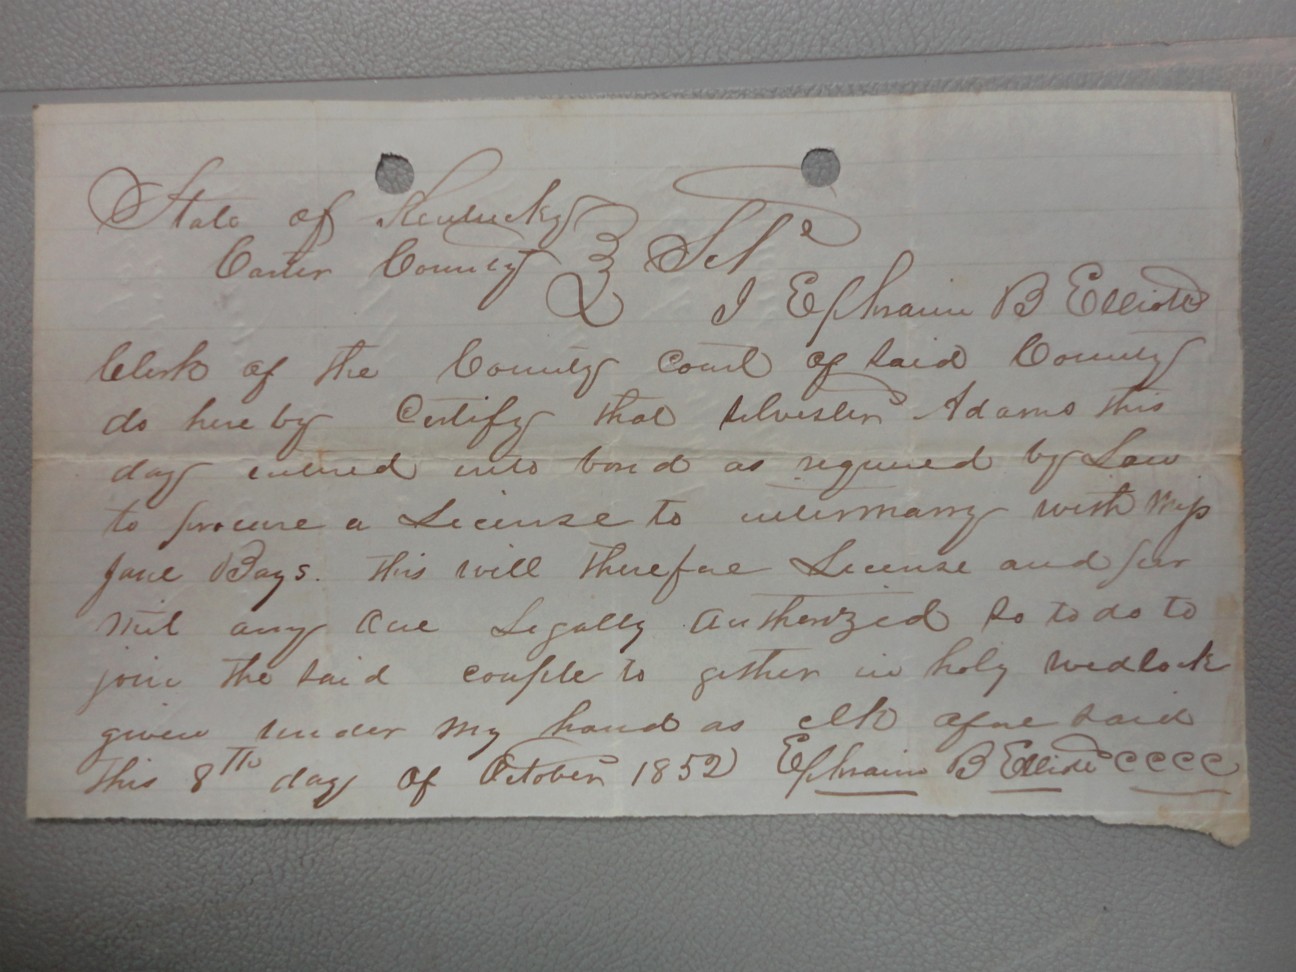 State of Kentucky } Sct
Carter County }
I Ephraim B Elliott
Clerk of the County Court of said County
do here by Certify that Silvester Adams this
day entered into bond as required by Law
to procure a License to intermarry with Miss
Jane Bays. this will therefore License and per
mit any one Legally Authorized so to do to
join the said couple to gether in holy wedlock
given under my hand as clk afore said
this 8th day of October 1852 Ephraim B Elliott CCCC